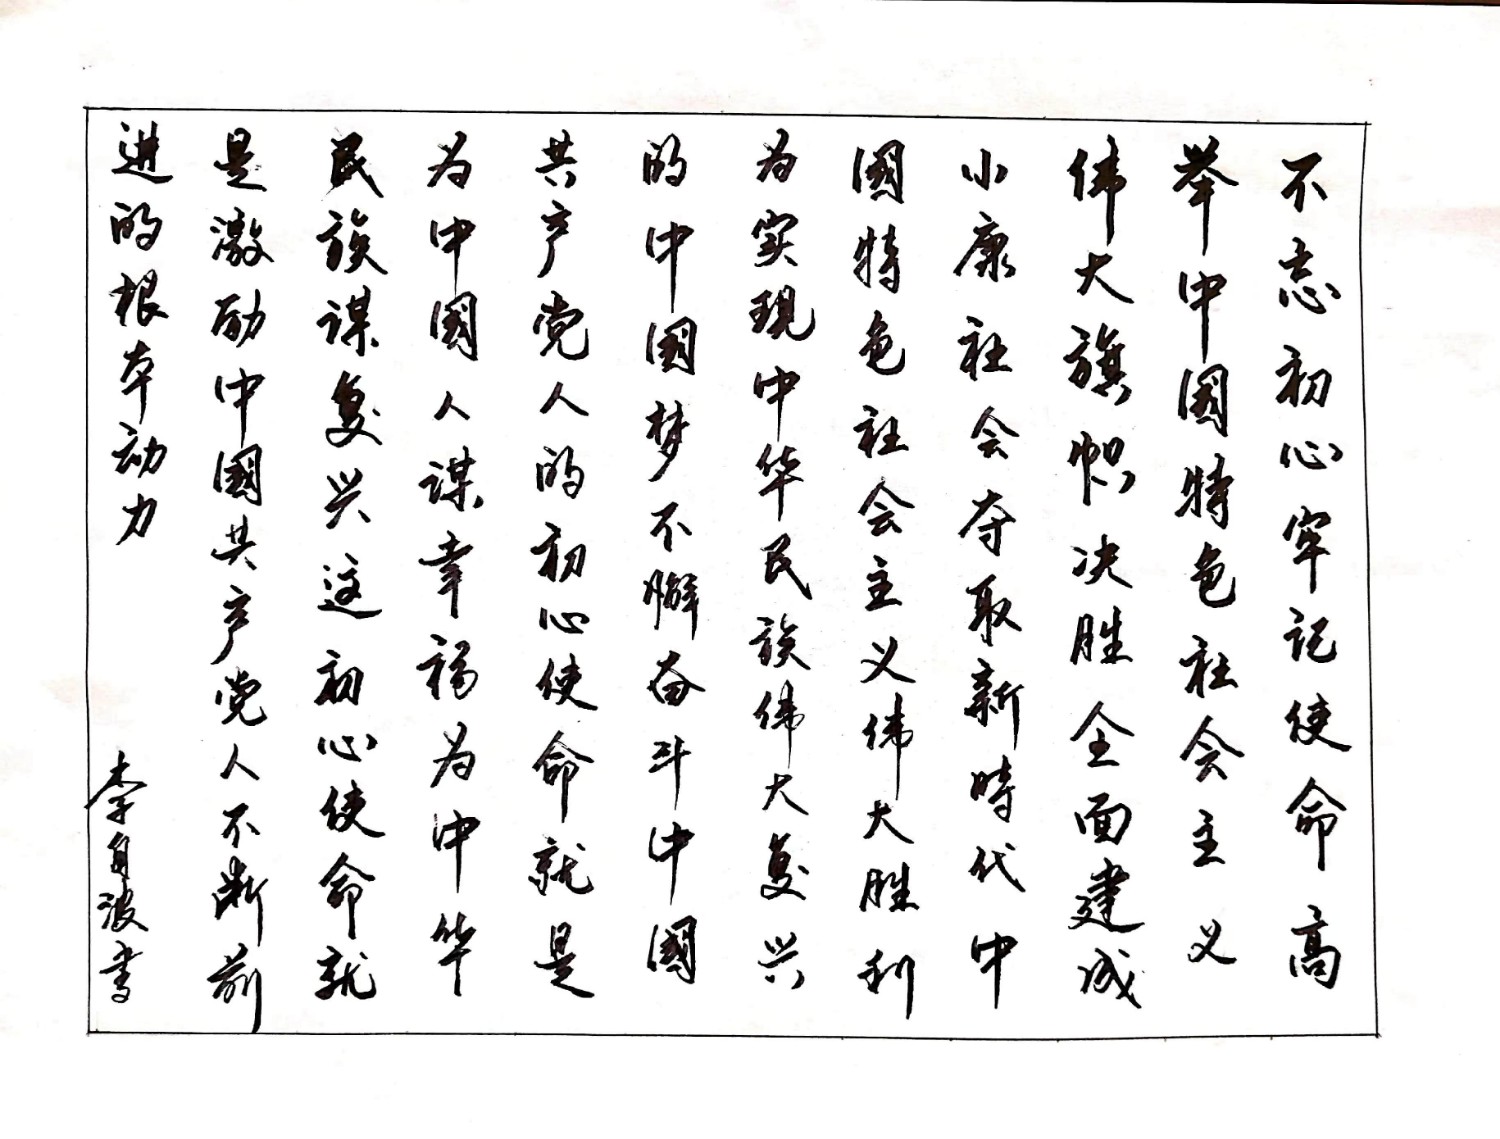 不忘初心牢记使命高
举中国特色社会主义
伟大旗帜决胜全面建成
小康社会夺取新時代中
國特色社会主义伟大胜利
为实现中华民族伟大复兴
的中国梦不懈奋斗中國
共产党人的初心使命就是
为中國人谋幸福为中华
民族谋复兴这初心使命就
是激励中國共产党人不断前
进的根本动力
李自波書